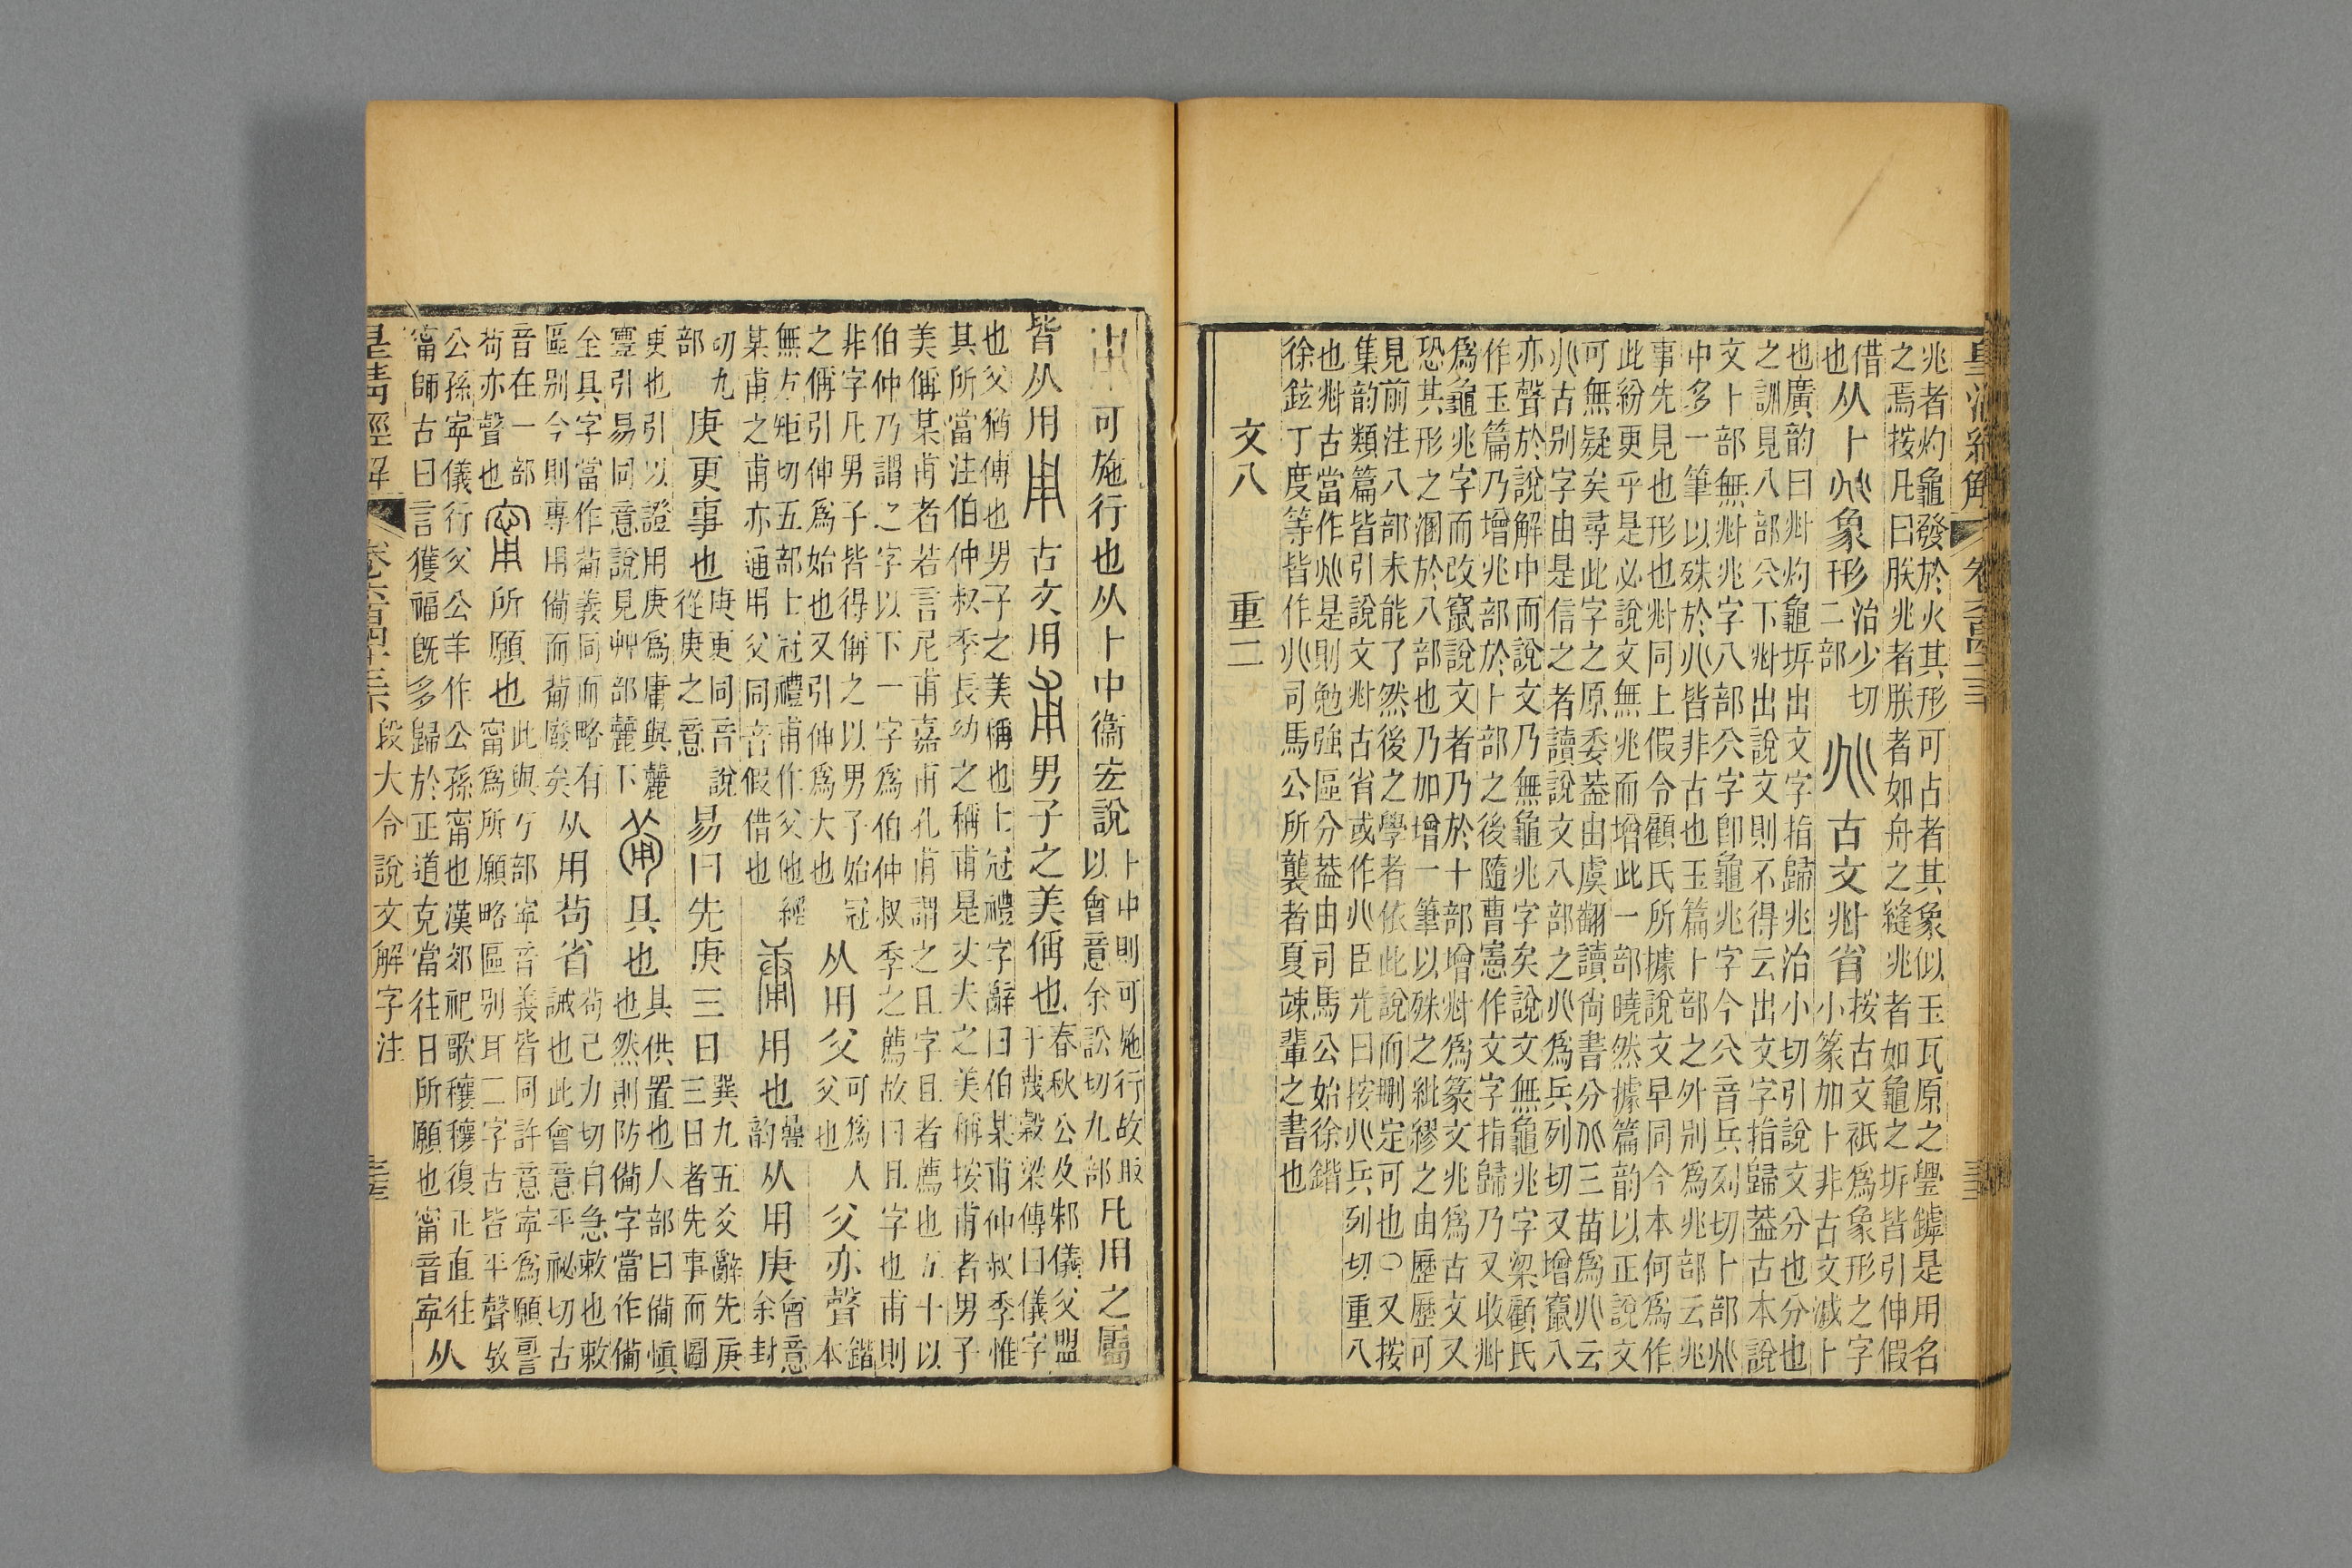 兆者灼龜發於火其形可占者其象似玉瓦原之璺鏬是用名
之焉按凡曰朕兆者朕者如舟之縫兆者如龜之坼皆引伸假
借也从卜兆象形治少切二部𠔁古文𠧞省按古文祇爲象形之字小篆加卜非古文減卜
也廣韵曰𠧞灼龜坼出文字指歸兆治小切引說文分也分也
之訓見八部㕣下𠧞出說文則不得云出文字指歸葢古本說
文卜部無𠧞兆字八部㕣字卽龜兆字今㕣音兵列切卜部兆
中多一筆以殊於𠔁皆非古也玉篇卜部之外別爲兆部云兆
事先見也形也𠧞同上假令顧氏所據說文早同今本何爲作
此紛更乎是必說文無兆而增此一部曉然據篇韵以正說文
可無疑矣尋此字之原委葢由虞翻讀尙書分𠔁三苗爲𠔁云
𠔁古别字由是信之者讀說文八部之𠔁爲兵列切又增竄八
亦聲於說解中而說文乃無龜兆字矣說文無龜兆字梁顧氏
作玉篇乃增兆部於卜部之後隨曹憲作文字指歸乃又收𠧞
爲龜兆字而改竄說文者乃於卜部增𠧞爲篆文兆爲古文又
恐其形之溷於八部也乃加增一筆以殊之紕繆之由歷歷可
見前注八部未能了然後之學者依此說而刪定可也○又按
集韵類篇皆引說文𠧞古省或作𠔁臣光曰按𠔁兵列切重八
也𠧞古當作兆是則勉強區分葢由司馬公始徐鍇
徐鉉丁度等皆作𠔁司馬公所襲者夏竦輩之書也
文八 重二
用可施行也从卜中衞宏說卜中則可施行故取以會意余訟切九部凡用之屬
皆从用𠂦古文用甫男子之美偁也春秋公及邾儀父盟于蔑穀梁傳曰儀字
也父猶傅也男子之美稱也士冠禮字辭曰伯某甫仲叔季惟
其所當注伯仲叔季長幼之稱甫是丈夫之美稱按甫者男子
美偁某甫者若言尼甫嘉甫孔甫謂之且字且者薦也五十以
伯仲乃謂之字以下一字爲伯仲叔季之薦故曰且字也甫則
非字凡男子皆得偁之以男子始冠
之偁引伸爲始也又引伸爲大也从用父可爲人父也父亦聲鍇本
無方矩切五部士冠禮甫作父他經
某甫之甫亦通用父同音假借也𤰈用也韻從用庚會意余封
切九部庚更事也庚更同音說從庚之意易曰先庚三日巽九五爻辭先庚三日者先事而圖
更也引以證用庚爲庸與麗
靈引易同意說見艸部麗下𤰇具也具供置也人部曰備愼也然則防備字當作備
全具字當作𤰇義同而略有
區别今則專用備而𤰇廢矣从用茍省茍己力切自急敕也敕誡也此會意平祕切古
音在一部
茍亦聲也甯所願也此與丂部寧音義皆同許意寧爲願詞甯爲所願略區别耳二字古皆平聲故
公孫寧儀行父公羊作公孫甯也漢郊祀歌穰穰復正直往
甯師古曰言獲福旣多歸於正道克當往日所願也甯音寧从
皇清經解 卷六百四十三 段大令說文解字注